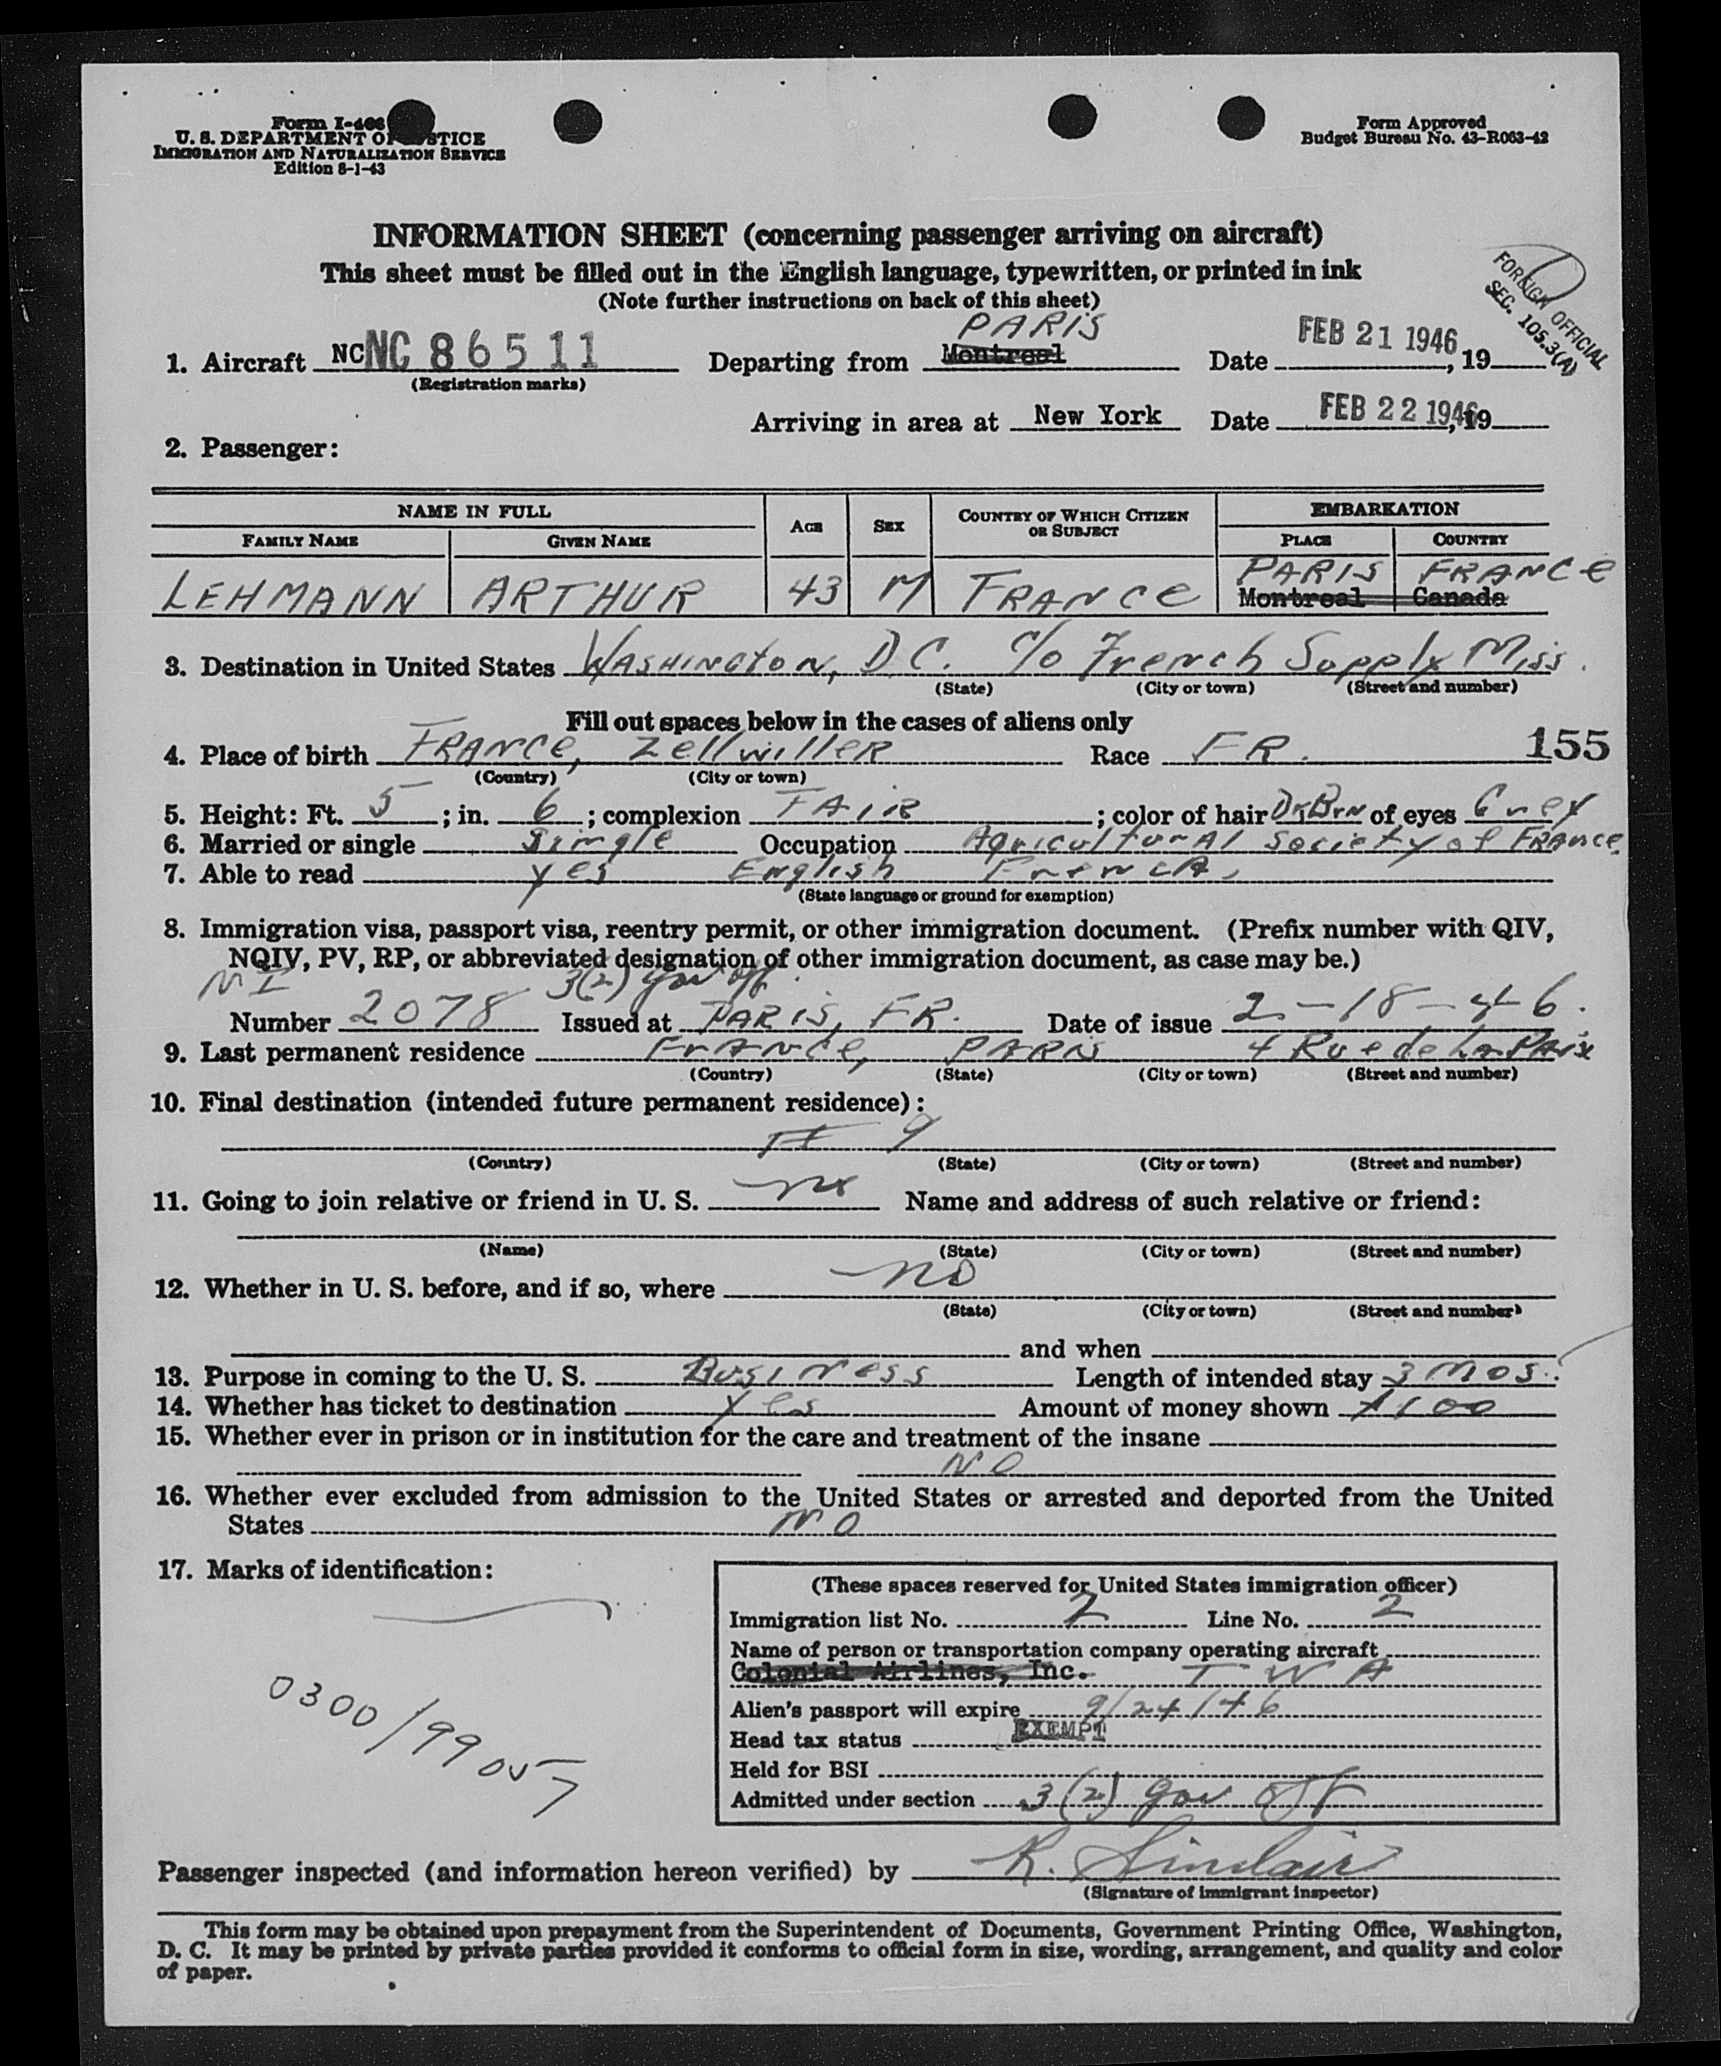 Form I-466
U. S. DEPARTMENT OF JUSTICE
IMMIGRATION AND NATURALIZATION SERVICE
Edition 8-1-43
Form Approved
Budget Bureau No. 43-R063-42
INFORMATION SHEET (concerning passenger arriving on aircraft)
This sheet must be filled out in the English language, typewritten, or printed in ink
(Note further instructions on back of this sheet)
FOREIGN OFFICIAL
SEC. 105.3(A)
PARIS
1. Aircraft NC NC 86511 Departing from Montreal Date FEB 21 1946, 19
(Registration marks)
Arriving in area at New York Date FEB 22 1946, 19
2. Passenger:
NAME IN FULL AGE SEX COUNTRY OF WHICH CITIZEN OR SUBJECT EMBARKATION
FAMILY NAME GIVEN NAME PLACE COUNTRY
PARIS FRANCE
LEHMANN ARTHUR 43 M FRANCE Montreal Canada
3. Destination in United States WASHINGTON, D.C. c/o French Supply Miss.
(State) (City or town) (Street and number)
Fill out spaces below in the cases of aliens only
4. Place of birth FRANCE, Zellwiller Race FR. 155
(Country) (City or town)
5. Height: Ft. 5 ; in. 6 ; complexion FAIR ; color of hair DK Brn of eyes Grey
6. Married or single Single Occupation Agricultural Society of FRANCE
7. Able to read yes English French
(State language or ground for exemption)
8. Immigration visa, passport visa, reentry permit, or other immigration document. (Prefix number with QIV,
NQIV, PV, RP, or abbreviated designation of other immigration document, as case may be.)
3(2) gov off.
Number 2078 Issued at PARIS, FR. Date of issue 2-18-46.
9. Last permanent residence France, PARIS 4 Rue de La Paix
(Country) (State) (City or town) (Street and number)
10. Final destination (intended future permanent residence):
(Country) (State) (City or town) (Street and number)
11. Going to join relative or friend in U. S. no Name and address of such relative or friend:
(Name) (State) (City or town) (Street and number)
12. Whether in U. S. before, and if so, where no
(State) (City or town) (Street and number)
and when
13. Purpose in coming to the U. S. Business Length of intended stay 3 mos.
14. Whether has ticket to destination Yes Amount of money shown $100
15. Whether ever in prison or in institution for the care and treatment of the insane
NO
16. Whether ever excluded from admission to the United States or arrested and deported from the United
States NO
17. Marks of identification:
0300/99057
(These spaces reserved for United States immigration officer)
Immigration list No. 2 Line No. 2
Name of person or transportation company operating aircraft
Colonial Airlines, Inc. TWA
Alien's passport will expire 9/24/46
Head tax status EXEMPT
Held for BSI
Admitted under section 3(2) gov off
Passenger inspected (and information hereon verified) by R. Sinclair
(Signature of immigrant inspector)
This form may be obtained upon prepayment from the Superintendent of Documents, Government Printing Office, Washington,
D. C. It may be printed by private parties provided it conforms to official form in size, wording, arrangement, and quality and color
of paper.